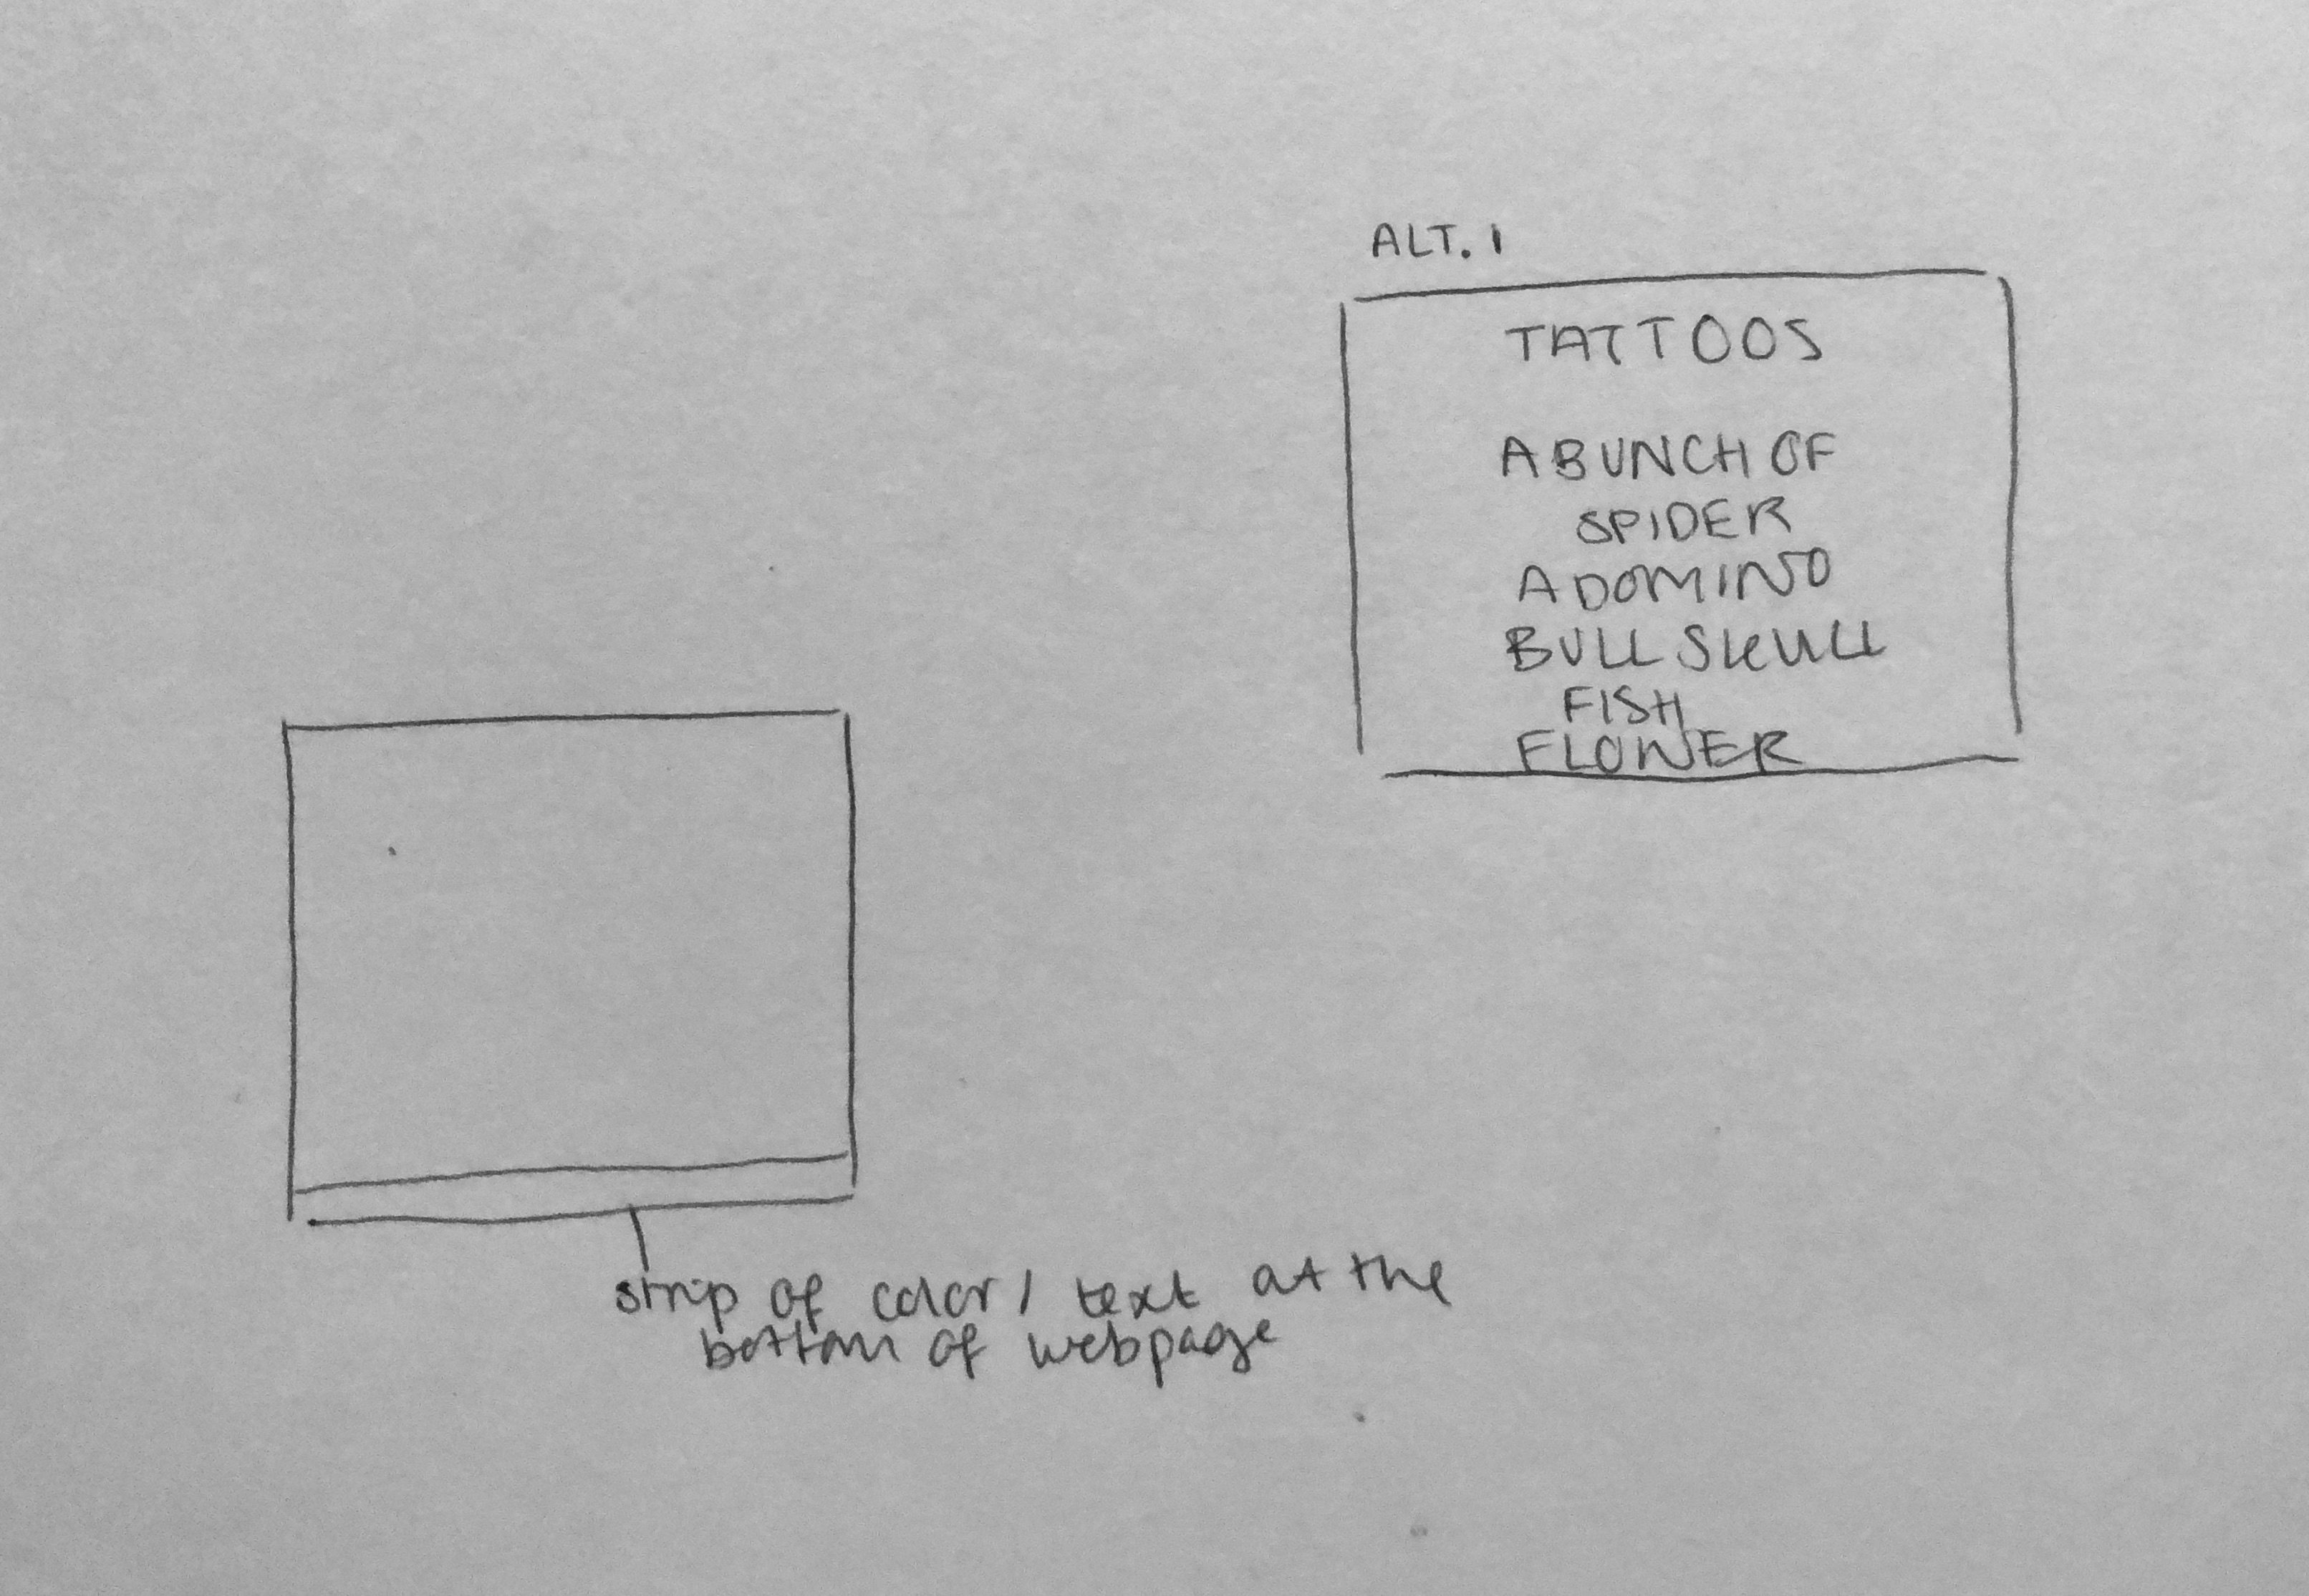 ALT. 1
TATTOOS
A BUNCH OF
SPIDER
A DOMINO
BULL SKULL
FISH
FLOWER
strip of color / text at the
bottom of webpage